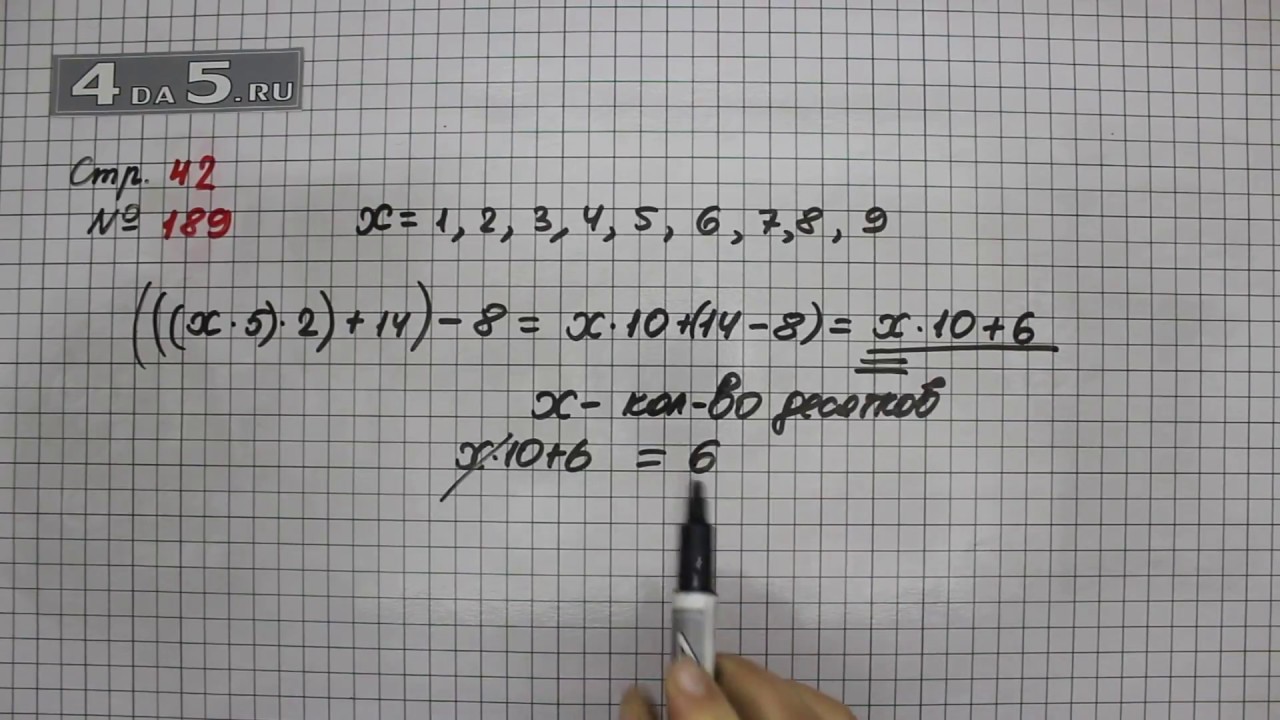 4DA5.RU
Стр. 42
№ 189 x = 1, 2, 3, 4, 5, 6, 7, 8, 9
(((x·5)·2)+14)-8 = x·10+(14-8) = x·10+6
x - кол-во десятков
x·10+6 = 6